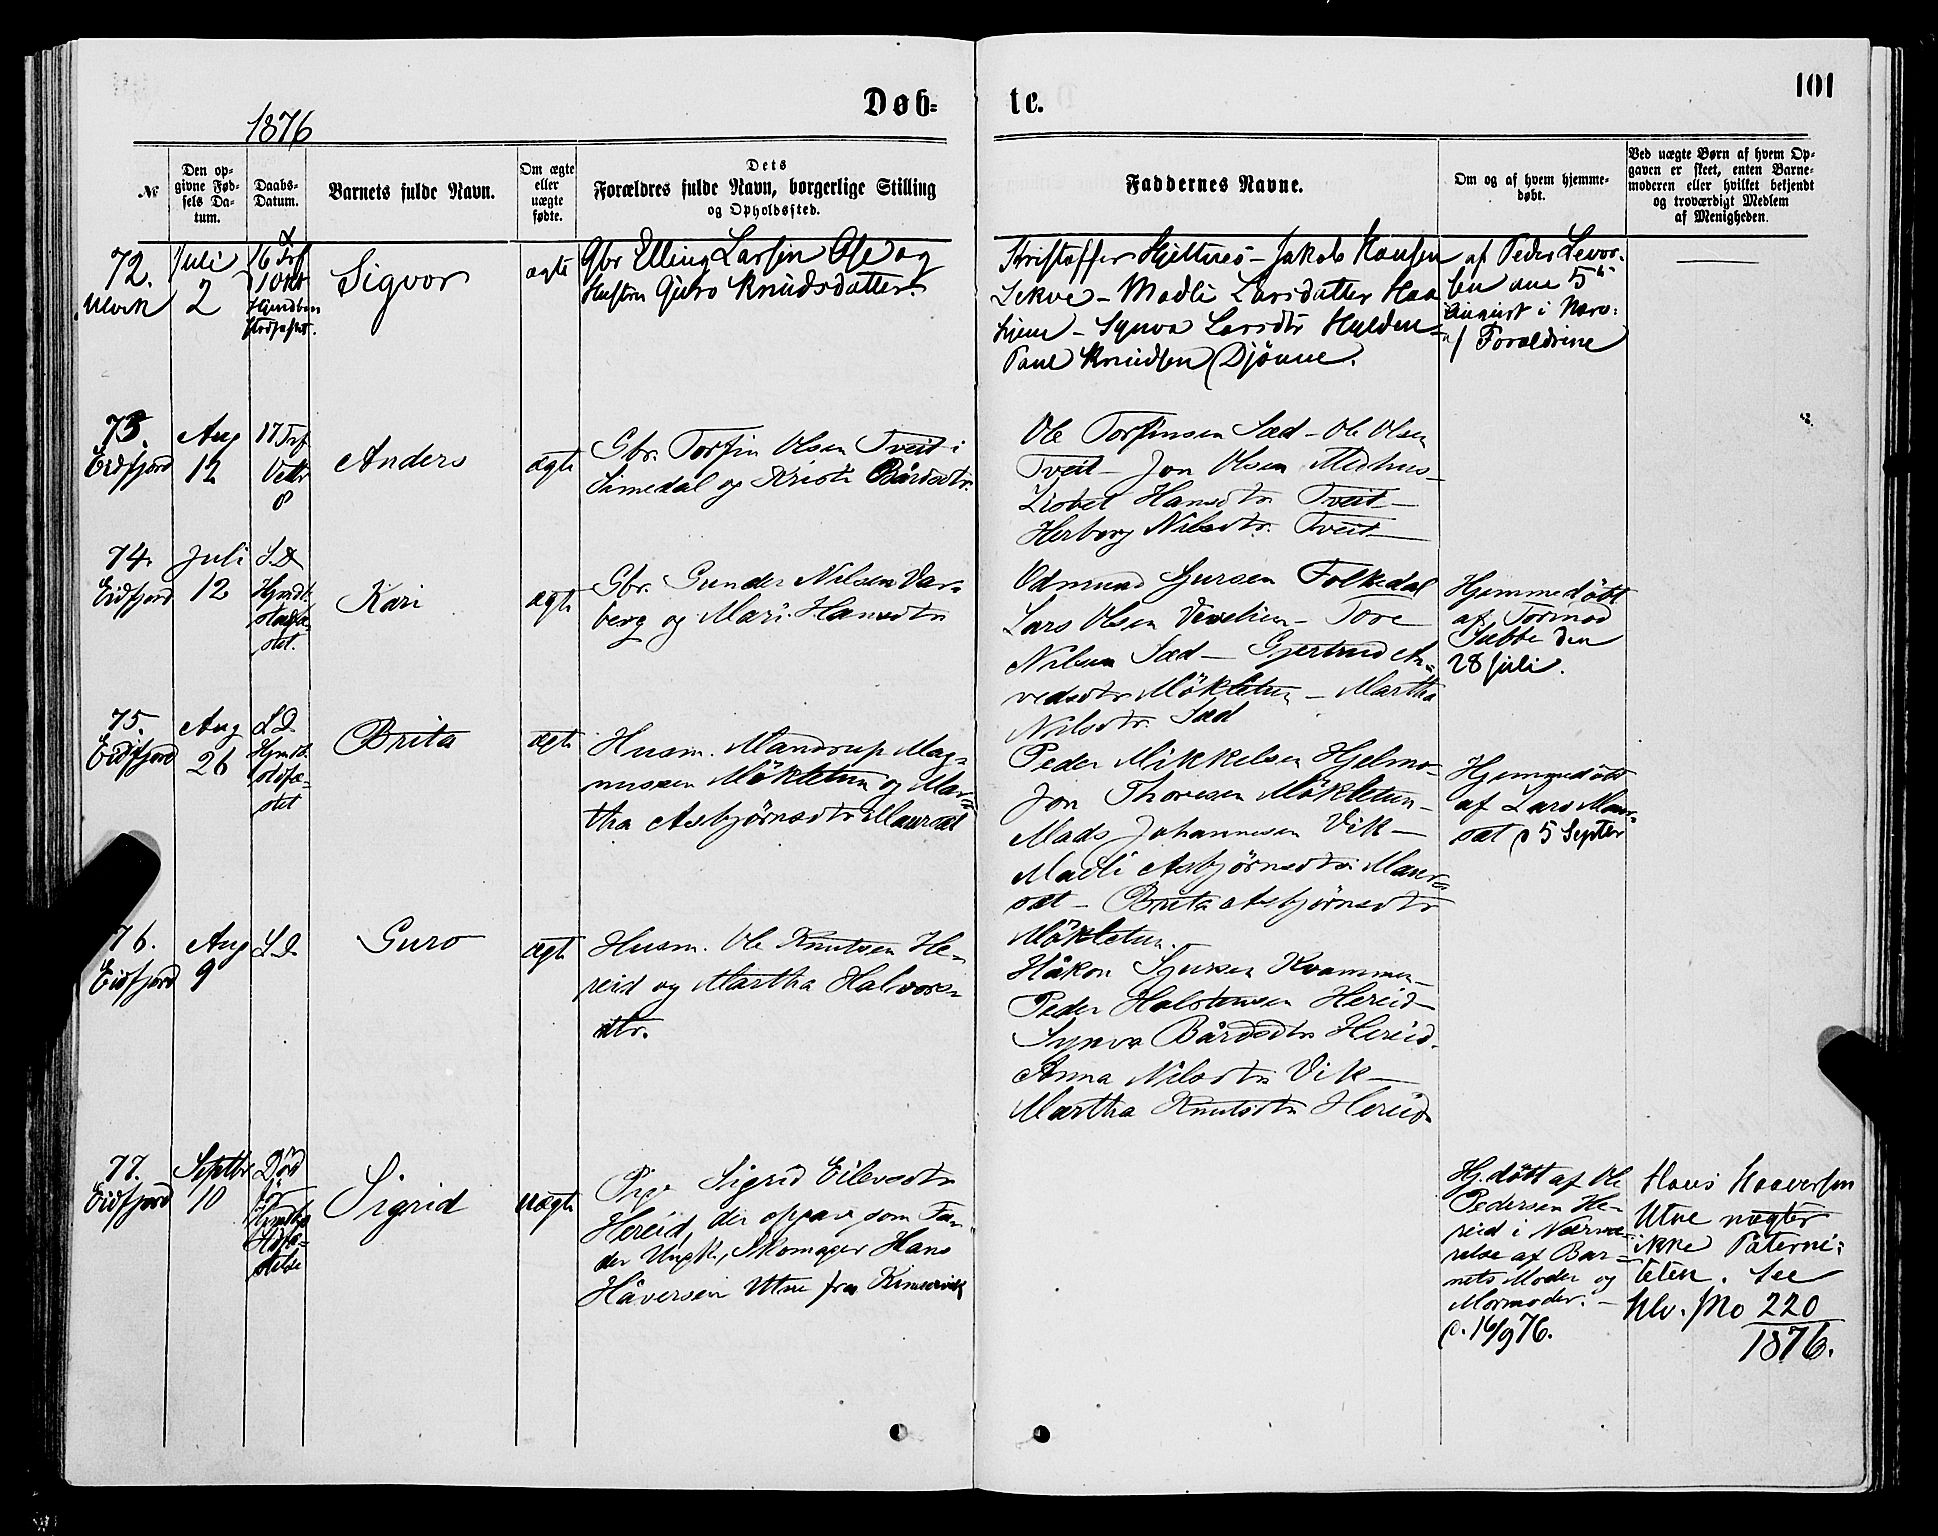 101
Døb-
te.
1876
№
Den op-
givne Fød-
sels Da-
tum.
Daabs-
Datum.
Barnets fulde Navn.
Om ægte
eller
uægte
fødte.
Dets
Forældres fulde Navn, borgerlige Stilling
og Opholdssted.
Faddernes Navne.
Om og af hvem hjemme-
døbt.
Ved uægte Børn af hvem Op-
gaven er skeet, enten Barne-
moderen eller hvilket bekjendt
og troværdigt Medlem
af Menigheden.
72.
Ulvik
Juli
2
16 Trf
1 Oktr
Sigvor
ægte
Gbr Elling Larsen Ose og
Hustru Guro Knudsdatter.
Kristoffer Hjeltnes - Jakob Hansen
Lekve - Madli Larsdatter Haa
hjem - Synva Larsdtr Hylden -
Paul Knudsen Djönne.
af Peder Levor-
sen 5te
August i Nærv:
af Forældrene
73.
Eidfjord
Aug
12
17 Trf
8
Anders
ægte
Gbr. Torfin Olsen Tveit i
Simedal og Kristi Bårdsdtr.
Ole Torfinsen Sæd - Ole Olsen
Tveit - Jon Olsen Medhus -
Lisbet Hansdtr Tveit -
Herborg Nilsdtr. Tveit
74.
Eidfjord
Juli
12
S.D.
Hjmdb.
stadfæ-
stet.
Kari
ægte
Gbr. Gunder Nilsen Var-
berg og Mari Hansdtr
Odmund Sjursen Folkedal
Lars Olsen Vevelien - Tore
Nilsen Sæd - Gjertrud Ar-
vedsdtr Mökletun - Martha
Nilsdtr. Sæd
Hjemmedöbt
af Tormod
Sæbbe den
28 Juli.
75.
Eidfjord
Aug
26
S.D.
Hjmdb.
stdfæ-
stet
Brita
ægte
Husm. Mandrup Mag-
nussen Mökletun og Mar-
tha Asbjörnsdtr Maursæt
Peder Mikkelsen Hjelmo -
Jon Thoresen Mökletun -
Mads Johannesen Vik -
Madli Asbjörnsdtr. Maur-
sæt - Brita Asbjörnsdtr
Mökletun.
Hjemmedöbt
af Lars Maur-
sæt d 5 Septer
76.
Eidfjord
Aug
9
S.D.
Guro
ægte
Husm. Ole Knutsen He-
reid og Martha Halvors-
dtr.
Håkon Sjursen Kvammen -
Peder Holstensen Hereid -
Synva Bårdsdtr Hereid.
Anna Nilsdtr Vik -
Martha Knutsdtr Hereid
77.
Eidfjord
Septbr
10
Död
för
Hjmdbs
Stdfæ-
stelse
Sigrid
uægte
Pige Sigrid Eilevsdtr
Hereid, der opgav som Fa-
der Ungk., Skomager Hans
Håversen Utne fra Kinservik
Hj.döbt af Ole
Pedersen He-
reid i Nærvæ-
relse af Bar-
nets Moder og
Mormoder. -
d. 16/9 76.
Hans Haaversen
Utne nægter
ikke Paterni-
teten. See
Ulv. No 220
1876.